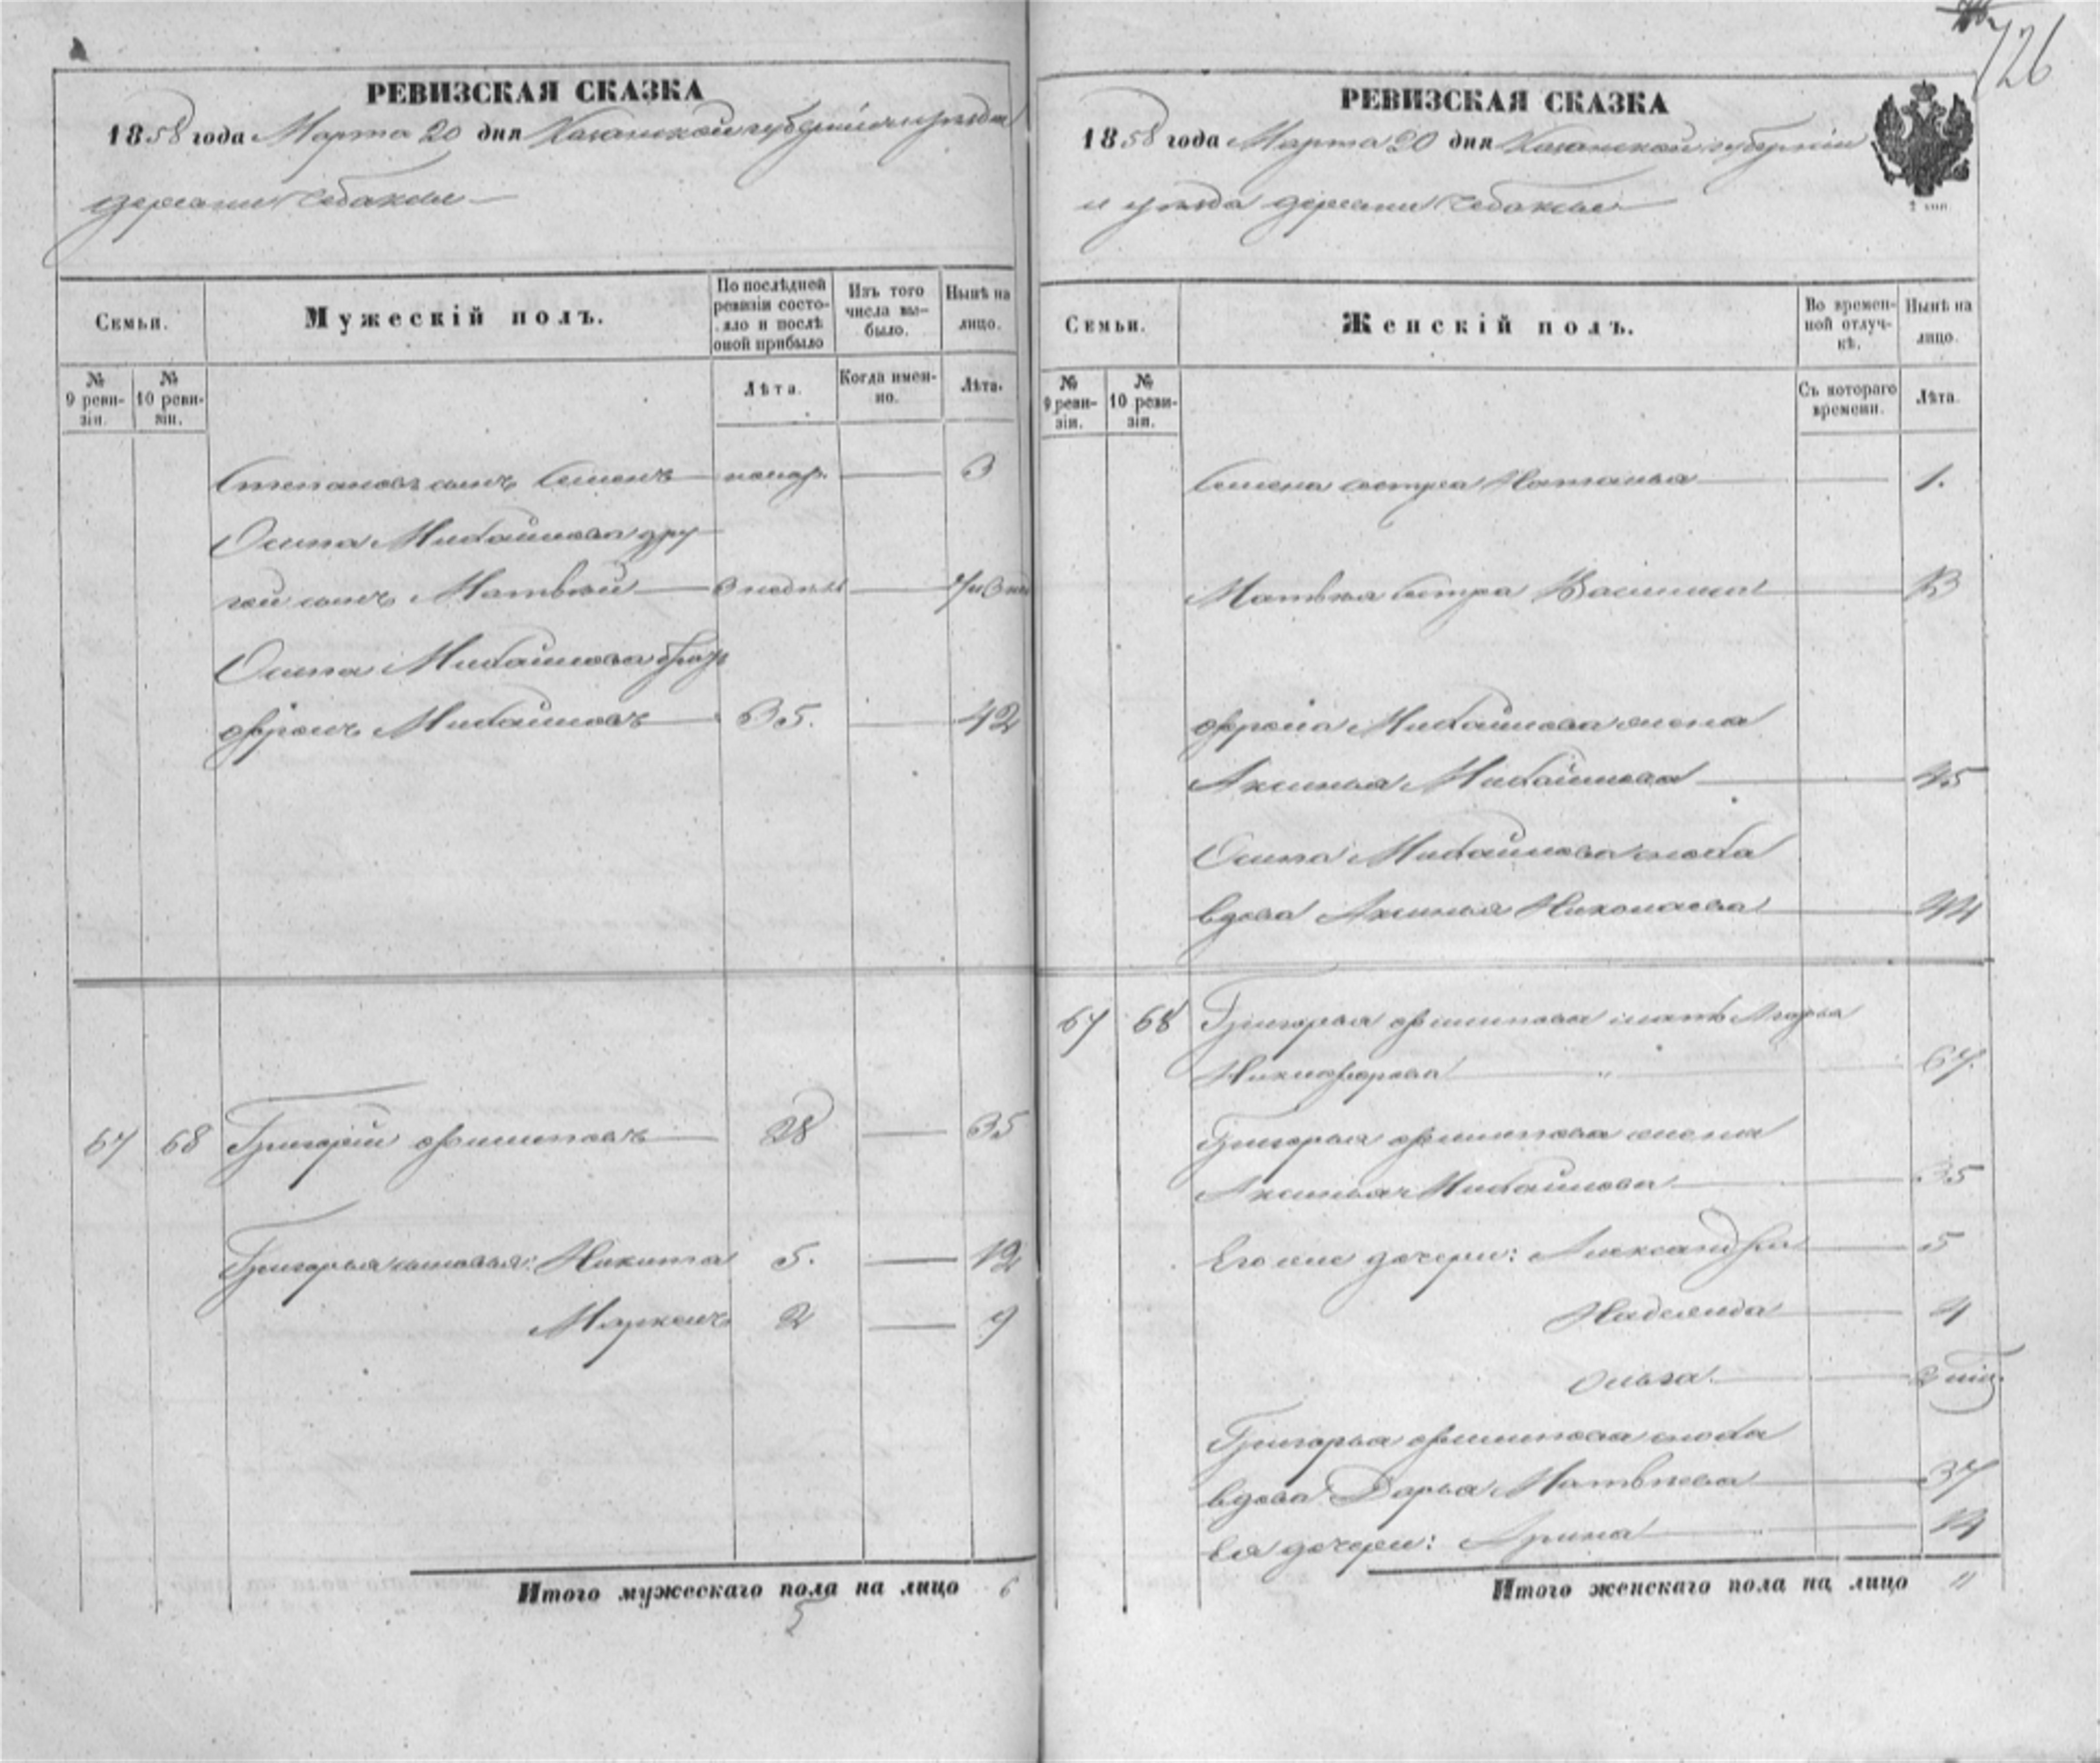 726
РЕВИЗСКАЯ СКАЗКА
1858 года Марта 20 дня Казанской губерніи и уѣзда
деревни Чебаксы
Семьи.
Мужескій полъ.
По послѣдней ревизіи состояло и послѣ оной прибыло
Изъ того числа выбыло.
Нынѣ на лицо.
№ 9 ревизіи.
№ 10 ревизіи.
Лѣта.
Когда именно.
Лѣта.
Степановъ сынъ Семенъ новор. 3
Осипа Михайлова дру
гой сынъ Матвѣй 3 недѣли
Осипа Михайлова братъ
Ефремъ Михайловъ 35. 42
67 68 Григорій Филиповъ 28 35
Григорья сыновья: Никита 5. 12
Маркелъ 2 9
Итого мужескаго пола на лицо 6
РЕВИЗСКАЯ СКАЗКА
1858 года Марта 20 дня Казанской губерніи
и уѣзда деревни Чебаксы
2 коп.
Семьи.
Женскій полъ.
Во временной отлучкѣ.
Нынѣ на лицо.
№ 9 ревизіи.
№ 10 ревизіи.
Съ котораго времени.
Лѣта.
Семена сестра Наталья 1.
Матвѣя сестра Василиса 13
Михайлова жена
Аксинья Михайлова 45
Осипа Михайлова сноха
вдова Аксинья Николаева 44
67 68 Григорья Филипова мать Марья
Никифорова 67.
Григорья Филипова жена
Аксинья Михайлова 35
Его же дочери: Александра 5
Надежда 4
Ольга
Григорья Филипова сноха
вдова Дарья Матвѣева 37
Ея дочери: Арина 14
Итого женскаго пола на лицо 11